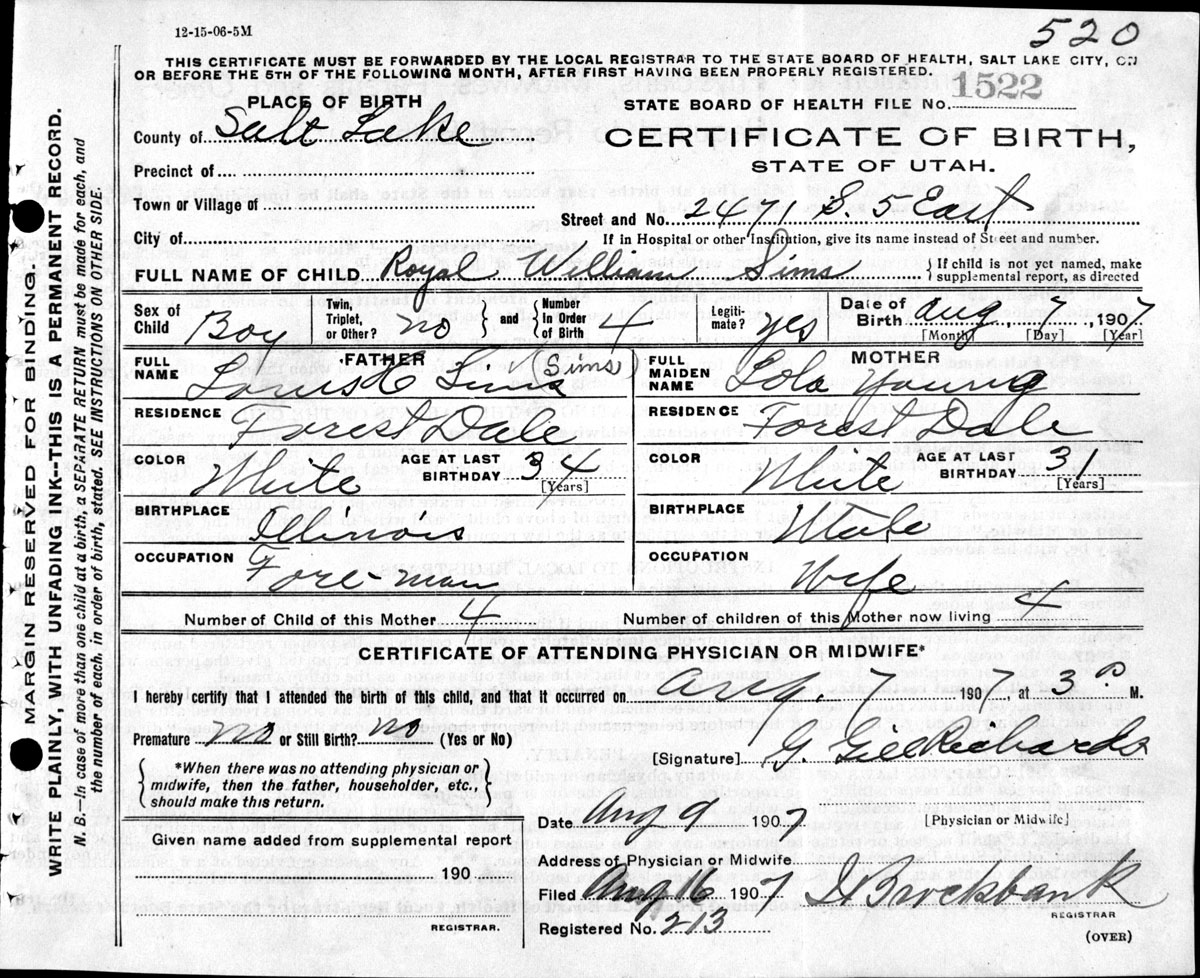 12-15-06-5M
520
THIS CERTIFICATE MUST BE FORWARDED BY THE LOCAL REGISTRAR TO THE STATE BOARD OF HEALTH, SALT LAKE CITY, ON
OR BEFORE THE 5TH OF THE FOLLOWING MONTH, AFTER FIRST HAVING BEEN PROPERLY REGISTERED.
PLACE OF BIRTH
STATE BOARD OF HEALTH FILE No. 1522
County of Salt Lake
CERTIFICATE OF BIRTH,
STATE OF UTAH.
Precinct of
Town or Village of
Street and No. 2471 S. 5 East
City of
If in Hospital or other Institution, give its name instead of Street and number.
FULL NAME OF CHILD Royal William Sims
{ If child is not yet named, make
supplemental report, as directed
Sex of Child Boy
Twin, Triplet, or Other? no } and { Number in Order of Birth 4
Legiti-mate? yes
Date of Birth Aug, 7, 1907
[Month] [Day] [Year]
FATHER
FULL NAME Louis C Sims (Sims)
MOTHER
FULL MAIDEN NAME Lola Young
RESIDENCE Forest Dale
RESIDENCE Forest Dale
COLOR White AGE AT LAST BIRTHDAY 34 [Years]
COLOR White AGE AT LAST BIRTHDAY 31 [Years]
BIRTHPLACE Illinois
BIRTHPLACE Utah
OCCUPATION Fore-man
OCCUPATION Wife
Number of Child of this Mother 4
Number of children of this Mother now living 4
CERTIFICATE OF ATTENDING PHYSICIAN OR MIDWIFE*
I hereby certify that I attended the birth of this child, and that it occurred on Aug 7 1907 at 3 P M.
Premature no or Still Birth? no (Yes or No)
[Signature] G. Gill Richards
{ *When there was no attending physician or
midwife, then the father, householder, etc.,
should make this return. }
Date Aug 9 1907
[Physician or Midwife]
Given name added from supplemental report
Address of Physician or Midwife
190
Filed Aug 16 1907 Brockbank
REGISTRAR
REGISTRAR.
Registered No. 213
(OVER)
MARGIN RESERVED FOR BINDING.
WRITE PLAINLY, WITH UNFADING INK--THIS IS A PERMANENT RECORD.
N. B.—In case of more than one child at a birth, a SEPARATE RETURN must be made for each, and
the number of each, in order of birth, stated. SEE INSTRUCTIONS ON OTHER SIDE.